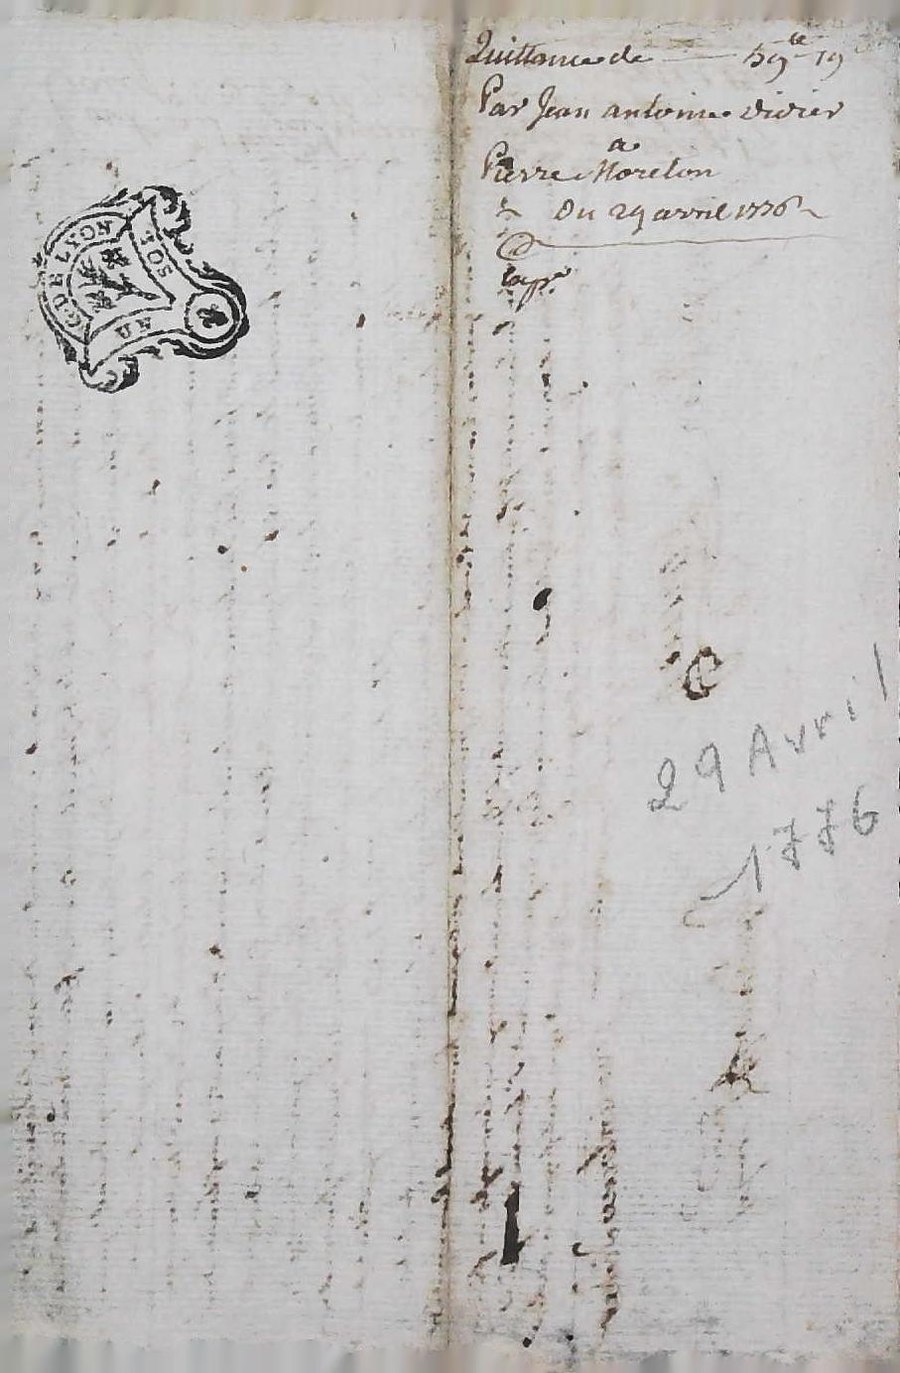 Quittance de — 59ᵗᵗ 19
Par Jean antoine Didier
a
Pierre Morelon
Du 29 avril 1776
G. DE LYON
UN SOL
29 Avril
1776